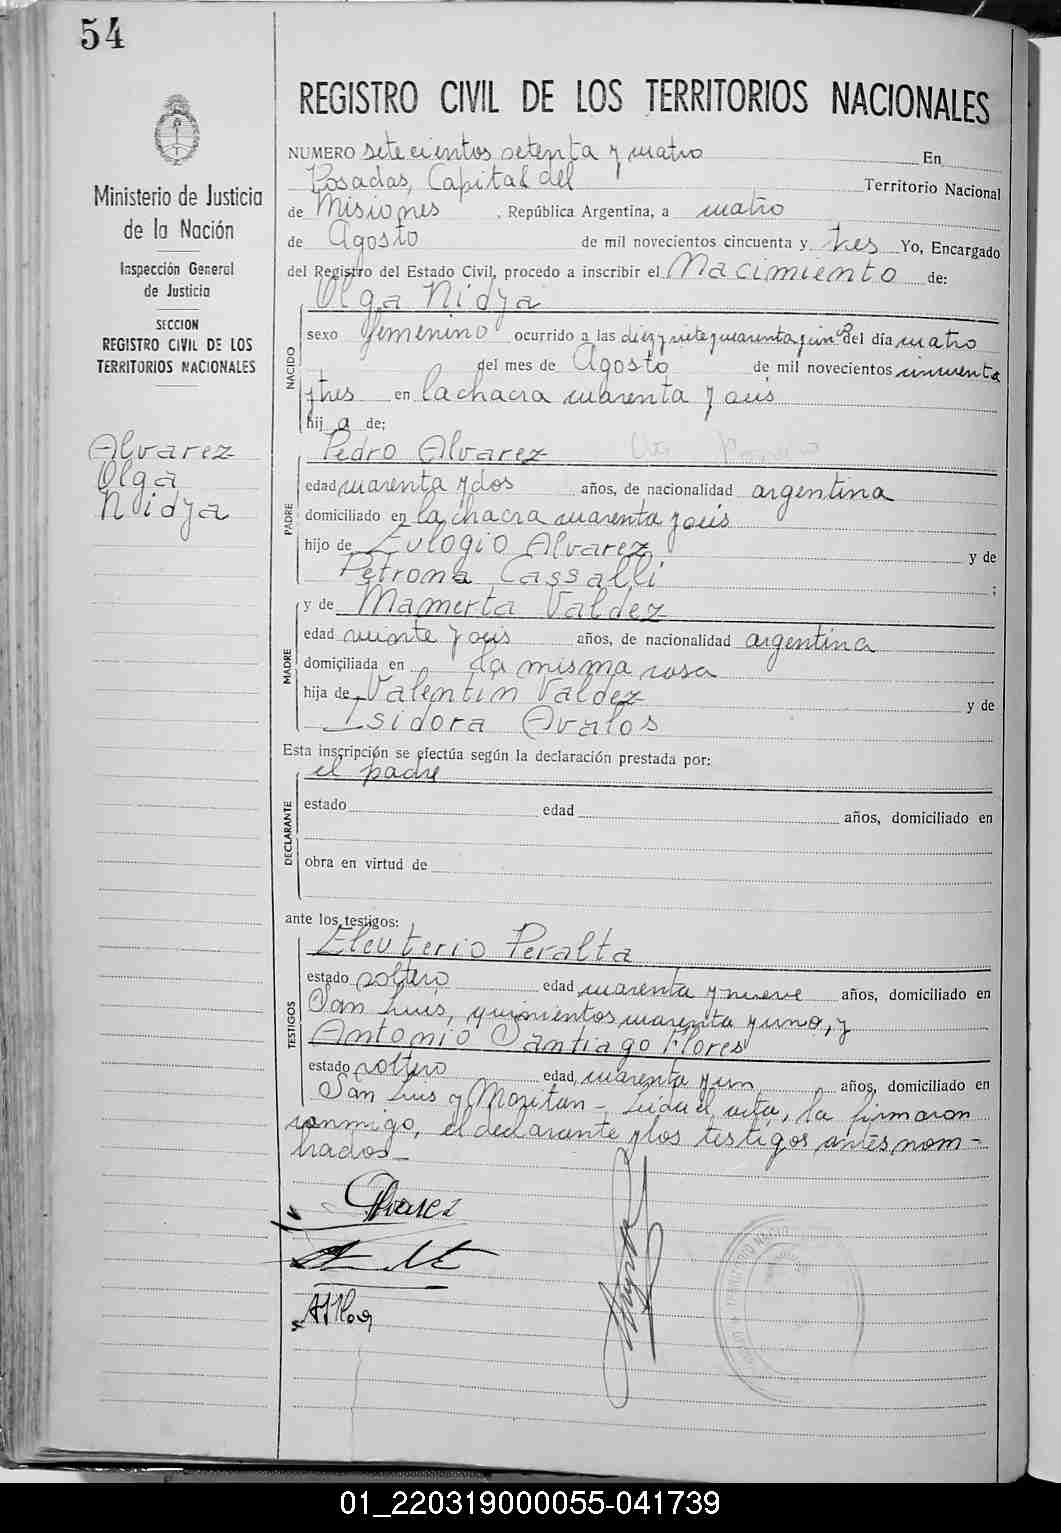 54
REGISTRO CIVIL DE LOS TERRITORIOS NACIONALES
Ministerio de Justicia
de la Nación
Inspección General
de Justicia
SECCION
REGISTRO CIVIL DE LOS
TERRITORIOS NACIONALES
Alvarez
Olga
Nidya
NUMERO setecientos setenta y cuatro En
Posadas, Capital del Territorio Nacional
de Misiones, República Argentina, a cuatro
de Agosto de mil novecientos cincuenta y tres Yo, Encargado
del Registro del Estado Civil, procedo a inscribir el Nacimiento de:
Olga Nidya
NACIDO
sexo femenino ocurrido a las diez y siete y cuarenta y cinco del día cuatro
del mes de Agosto de mil novecientos cincuenta
y tres en la chacra cuarenta y seis
hij a de:
PADRE
Pedro Alvarez
edad cuarenta y dos años, de nacionalidad argentina
domiciliado en la chacra cuarenta y seis
hijo de Eulogio Alvarez y de
Petrona Cassalli ;
MADRE
y de Mamerta Valdez
edad veinte y seis años, de nacionalidad argentina
domiciliada en la misma casa
hija de Valentin Valdez y de
Isidora Avalos
Esta inscripción se efectúa según la declaración prestada por:
el padre
DECLARANTE
estado edad años, domiciliado en
obra en virtud de
ante los testigos:
TESTIGOS
Eleuterio Peralta
estado soltero edad cuarenta y nueve años, domiciliado en
San Luis, quinientos cuarenta y uno, y
Antonio Santiago Flores
estado soltero edad cuarenta y un años, domiciliado en
San Luis y Moritan - Leida el acta, la firmaron
conmigo, el declarante y los testigos antes nom-
brados -
Alvarez
01_220319000055-041739